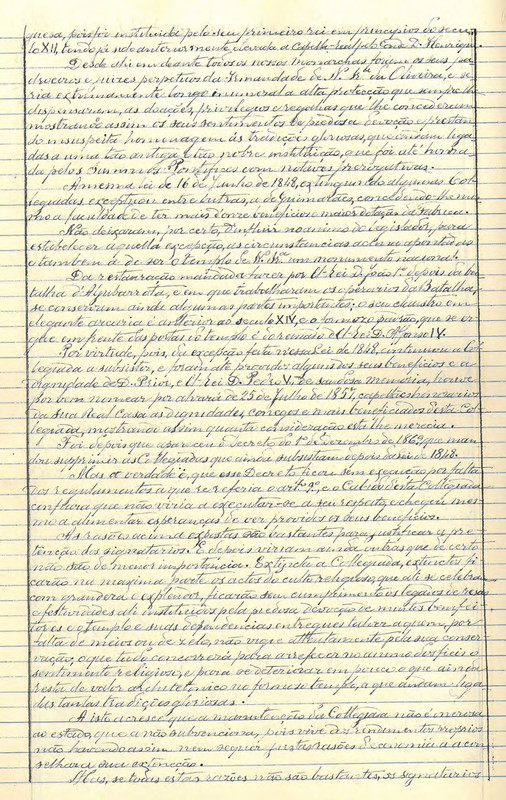 gueza, pois foi instituida pelo seu primeiro rei em principios do secu-
lo XII, tendo já sido anteriormente elevada a Capella-real pelo Conde D. Henrique.
Desde ahi em deante todos os nossos monarchas foram os seus pa-
droeiros e juizes perpetuos da Irmandade de N.ª Sr.ª da Oliveira, e se-
ria extremamente longo enumerar a alta protecção que sempre lhe
dispensaram, as doações, privilegios e regalias que lhe concederam
mostrando assim os seus sentimentos de piedosa devoção e prestan-
do insuspeita homenagem ás tradicções gloriosas, que andam liga-
das a uma tão antiga e tão nobre instituição, que foi até honra-
da pelos Summos Pontifices com notaveis prerogativas.
A mesma lei de 16 de Junho de 1848, extinguindo algumas Col-
legiadas exceptuou entre outras, a de Guimarães, concedendo-lhe mes-
mo a faculdade de ter mais doze beneficios e maior dotação da Fabrica.
Não deixaram, por certo, d'influir no animo do legislador, para
estabelecer aquella excepção, as circunstancias acima apontadas
e tambem a de ser o templo de N.ª Sr.ª um monumento nacional.
Da restauração mandada fazer por El-Rei D. João 1.º depois da ba-
talha d'Aljubarrota, e em que trabalharam os operarios da Batalha,
se conservam ainda algumas partes importantes: o seu claustro em
elegante arcaria é anterior ao seculo XIV, e o famoso padrão, que se er-
gue em frente das portas do templo é do reinado d'El-Rei D. Affonso IV.
Por virtude, pois, da excepção feita n'essa Lei de 1848, continuou a Col-
legiada a subsistir, e foram até providos alguns dos seus beneficios e a
dignidade de D. Prior, e El-Rei D. Pedro V, de saudosa memória, houve
por bem nomear por alvará de 25 de Julho de 1857, capellães honorarios
da Sua Real Casa as dignidades, conegos e mais beneficiados desta Col-
legiada, mostrando assim quanta consideração esta lhe merecia.
Foi depois que appareceu o decreto do 1.º de Dezembro de 1869, que man-
dou supprimir as Collegiadas que ainda subsistiam depois da lei de 1848.
Mas a verdade é, que esse Decreto ficou sem execução por falta
dos regulamentos a que se referia o art.º 9.º, e o Cabido desta Collegiada
confiava que não viria a executar-se a seu respeito, e chegou mes-
mo a alimentar esperanças de ver providos os seus beneficios.
As rasões acima expostas são bastantes para justificar a pre-
tenção dos signatarios. E depois viriam ainda outras que de certo
não são de menor importancia. Extincta a Collegiada, extinctos fi-
carão na maxima parte os actos do culto religioso, que ali se celebra
com grandeza e explendor, ficarão sem cumprimento os legados de resas
e festividades ali instituidos pela piedosa devoção de muitos bemfei-
tores e o templo e suas dependencias entregues talvez a quem, por
falta de meios ou de zelo, não vigie attentamente pela sua conser-
vação, o que tudo concorreria para arrefecer no animo dos fieis o
sentimento religioso, e para se deteriorar em pouco o que ainda
resta de valor architetonico no formoso templo, a que andam liga-
das tantas tradições gloriosas.
A isto acresce que a manutenção da Collegiada não é onerosa
ao estado, que a não subvenciona, pois vive dos rendimentos proprios
não havendo assim nem sequer justas rasões de economia a acon-
selhar a sua extincção.
Mas, se todas estas razões não são bastantes, os signatarios